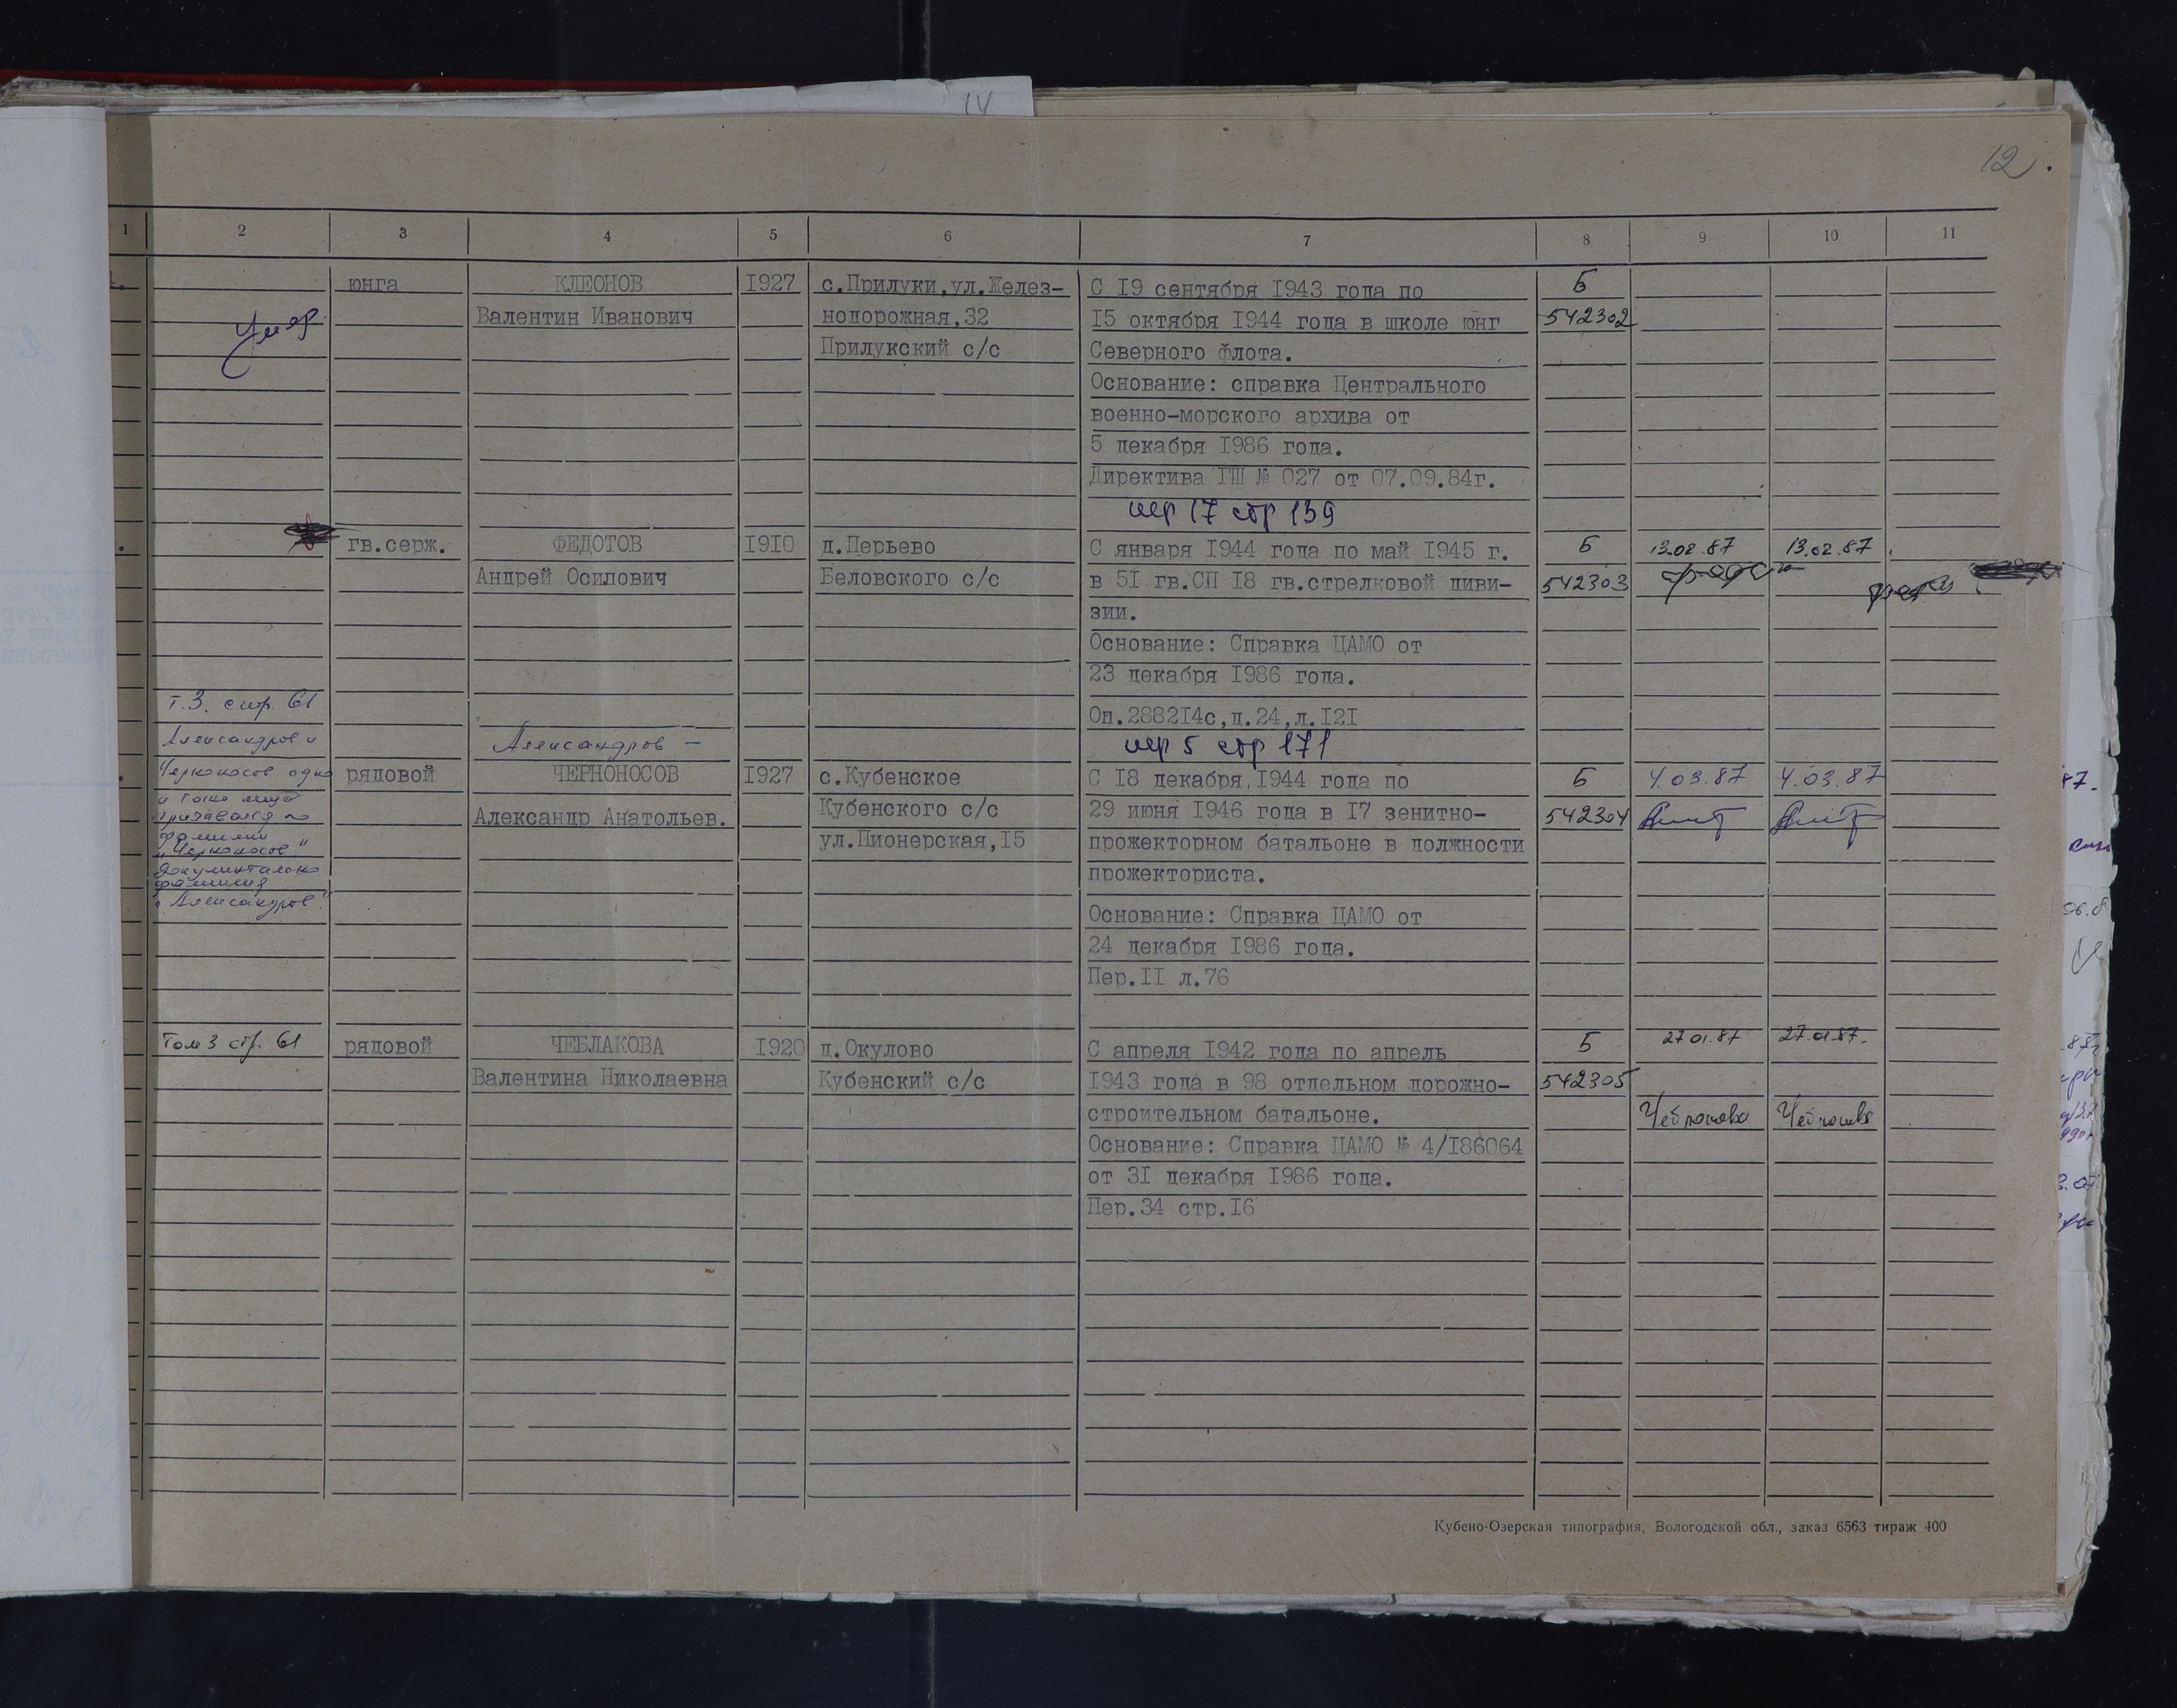 14
12.
1 2 3 4 5 6 7 8 9 10 11
юнга КЛЕОНОВ 1927 с.Прилуки,ул.Желез- С 19 сентября 1943 года по Б
Умер Валентин Иванович нодорожная,32 15 октября 1944 года в школе юнг 542302
Прилукский с/с Северного флота.
Основание: справка Центрального
военно-морского архива от
5 декабря 1986 года.
Директива ГШ № 027 от 07.09.84г.
пер 17 стр 139
гв.серж. ФЕДОТОВ 1910 д.Перьево С января 1944 года по май 1945 г. Б 13.02.87 13.02.87
Андрей Осипович Беловского с/с в 51 гв.СП 18 гв.стрелковой диви- 542303
зии.
Основание: Справка ЦАМО от
23 декабря 1986 года.
т.3. стр. 61
Оп.288214с,д.24,л.121
Александров и Александров — пер 5 стр 171
Черноносов одно рядовой ЧЕРНОНОСОВ 1927 с.Кубенское С 18 декабря,1944 года по Б 4.03.87 4.03.87
и тоже лицо
призывался по Александр Анатольев. Кубенского с/с 29 июня 1946 года в 17 зенитно- 542304
фамилии
"Черноносов" ул.Пионерская,15 прожекторном батальоне в должности
документально
фамилия прожекториста.
"Александров"
Основание: Справка ЦАМО от
24 декабря 1986 года.
Пер.II л.76
Том 3 стр. 61 рядовой ЧЕБЛАКОВА 1920 д.Окулово С апреля 1942 года по апрель Б 27.01.87 27.01.87.
Валентина Николаевна Кубенский с/с 1943 года в 98 отдельном дорожно- 542305
строительном батальоне. Чеблакова Чеблакова
Основание: Справка ЦАМО № 4/186064
от 31 декабря 1986 года.
Пер.34 стр.16
Кубено-Озерская типография, Вологодской обл., заказ 6563 тираж 400